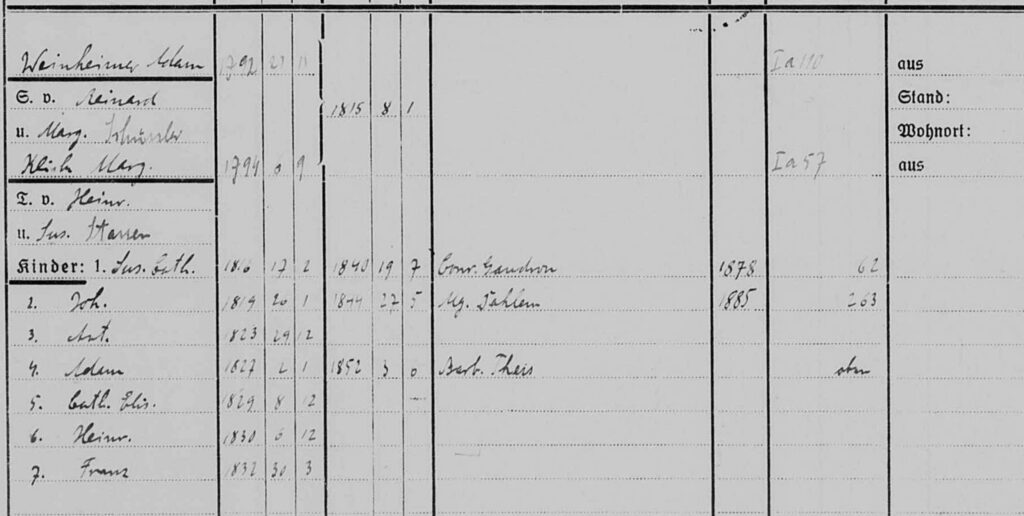 Weinheimer Adam 1792 27 11 Ia 110 aus
S. v. Reinard 1815 8 1 Stand:
u. Marg. Wohnort:
Marg. 1794 6 9 Ia 57 aus
T. v. Heinr.
u. Sus.
Kinder: 1. Sus. Cath. 1816 17 2 1840 19 7 Conr. Gaudron 1878 62
2. Joh. 1819 20 1 1844 27 5 Mg. Dahlem 1885 263
3. Ant. 1823 29 12
4. Adam 1827 2 1 1852 3 Barb. Theis oben
5. Cath. Elis. 1829 8 12
6. Heinr. 1830 6 12
7. Franz 1832 30 3